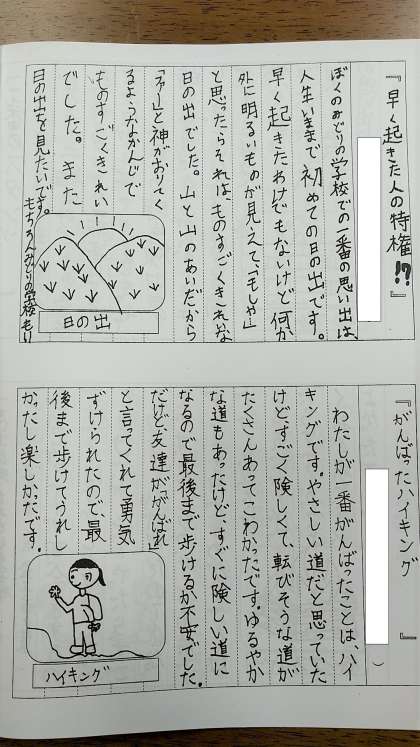 『早く起きた人の特権!?』
ぼくのみどりの学校での一番の思い出は、
人生いままで初めての日の出です。
早く起きたわけでもないけど何か
外に明るいものが見えて、「もしや…」
と思ったらそれは、ものすごくきれいな
日の出でした。山と山のあいだから
「ファ〜」と神がおりてく
るようなかんじで
ものすごくきれい
でした。また
日の出を見たいです。
もちろんみどりの学校も!!
日の出
『がんばったハイキング』
わたしが一番がんばったことは、ハイ
キングです。やさしい道だと思っていた
けど、すごく険しくて、転びそうな道が
たくさんあってこわかったです。ゆるやか
な道もあったけど、すぐに険しい道に
なるので最後まで歩けるか不安でした。
だけど友達が「がんばれ」
と言ってくれて勇気
ずけられたので、最
後まで歩けてうれし
かったし楽しかったです。
ハイキング